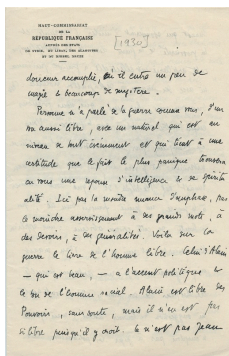 HAUT-COMMISSARIAT
DE LA
RÉPUBLIQUE FRANÇAISE
AUPRÈS DES ÉTATS
DE SYRIE, DU LIBAN, DES ALAOUITES
ET DU DJEBEL DRUZE
[1930]
douceur accomplie, où il entre un peu de
magie & beaucoup de mystère.
Personne n'a parlé de la guerre comme vous, d'un
ton aussi libre, avec un naturel qui est en
niveau de tout événement et qui tient à une
certitude que le fait le plus panique trouvera
en vous une réponse d'intelligence & de spiritu
alité. Ici pas la moindre nuance d'emphase, pas
le moindre à des grands mots, à
des devoirs, à des généralités. Voilà sur la
guerre le livre de l'homme libre. Celui d'Alain
- qui est beau, - a l'accent politique &
le ton de l'homme social. Alain est libre des
Pouvoirs, sans doute, mais il n'en est pas
si libre puisqu'il y croit. Ce n'est pas Jean